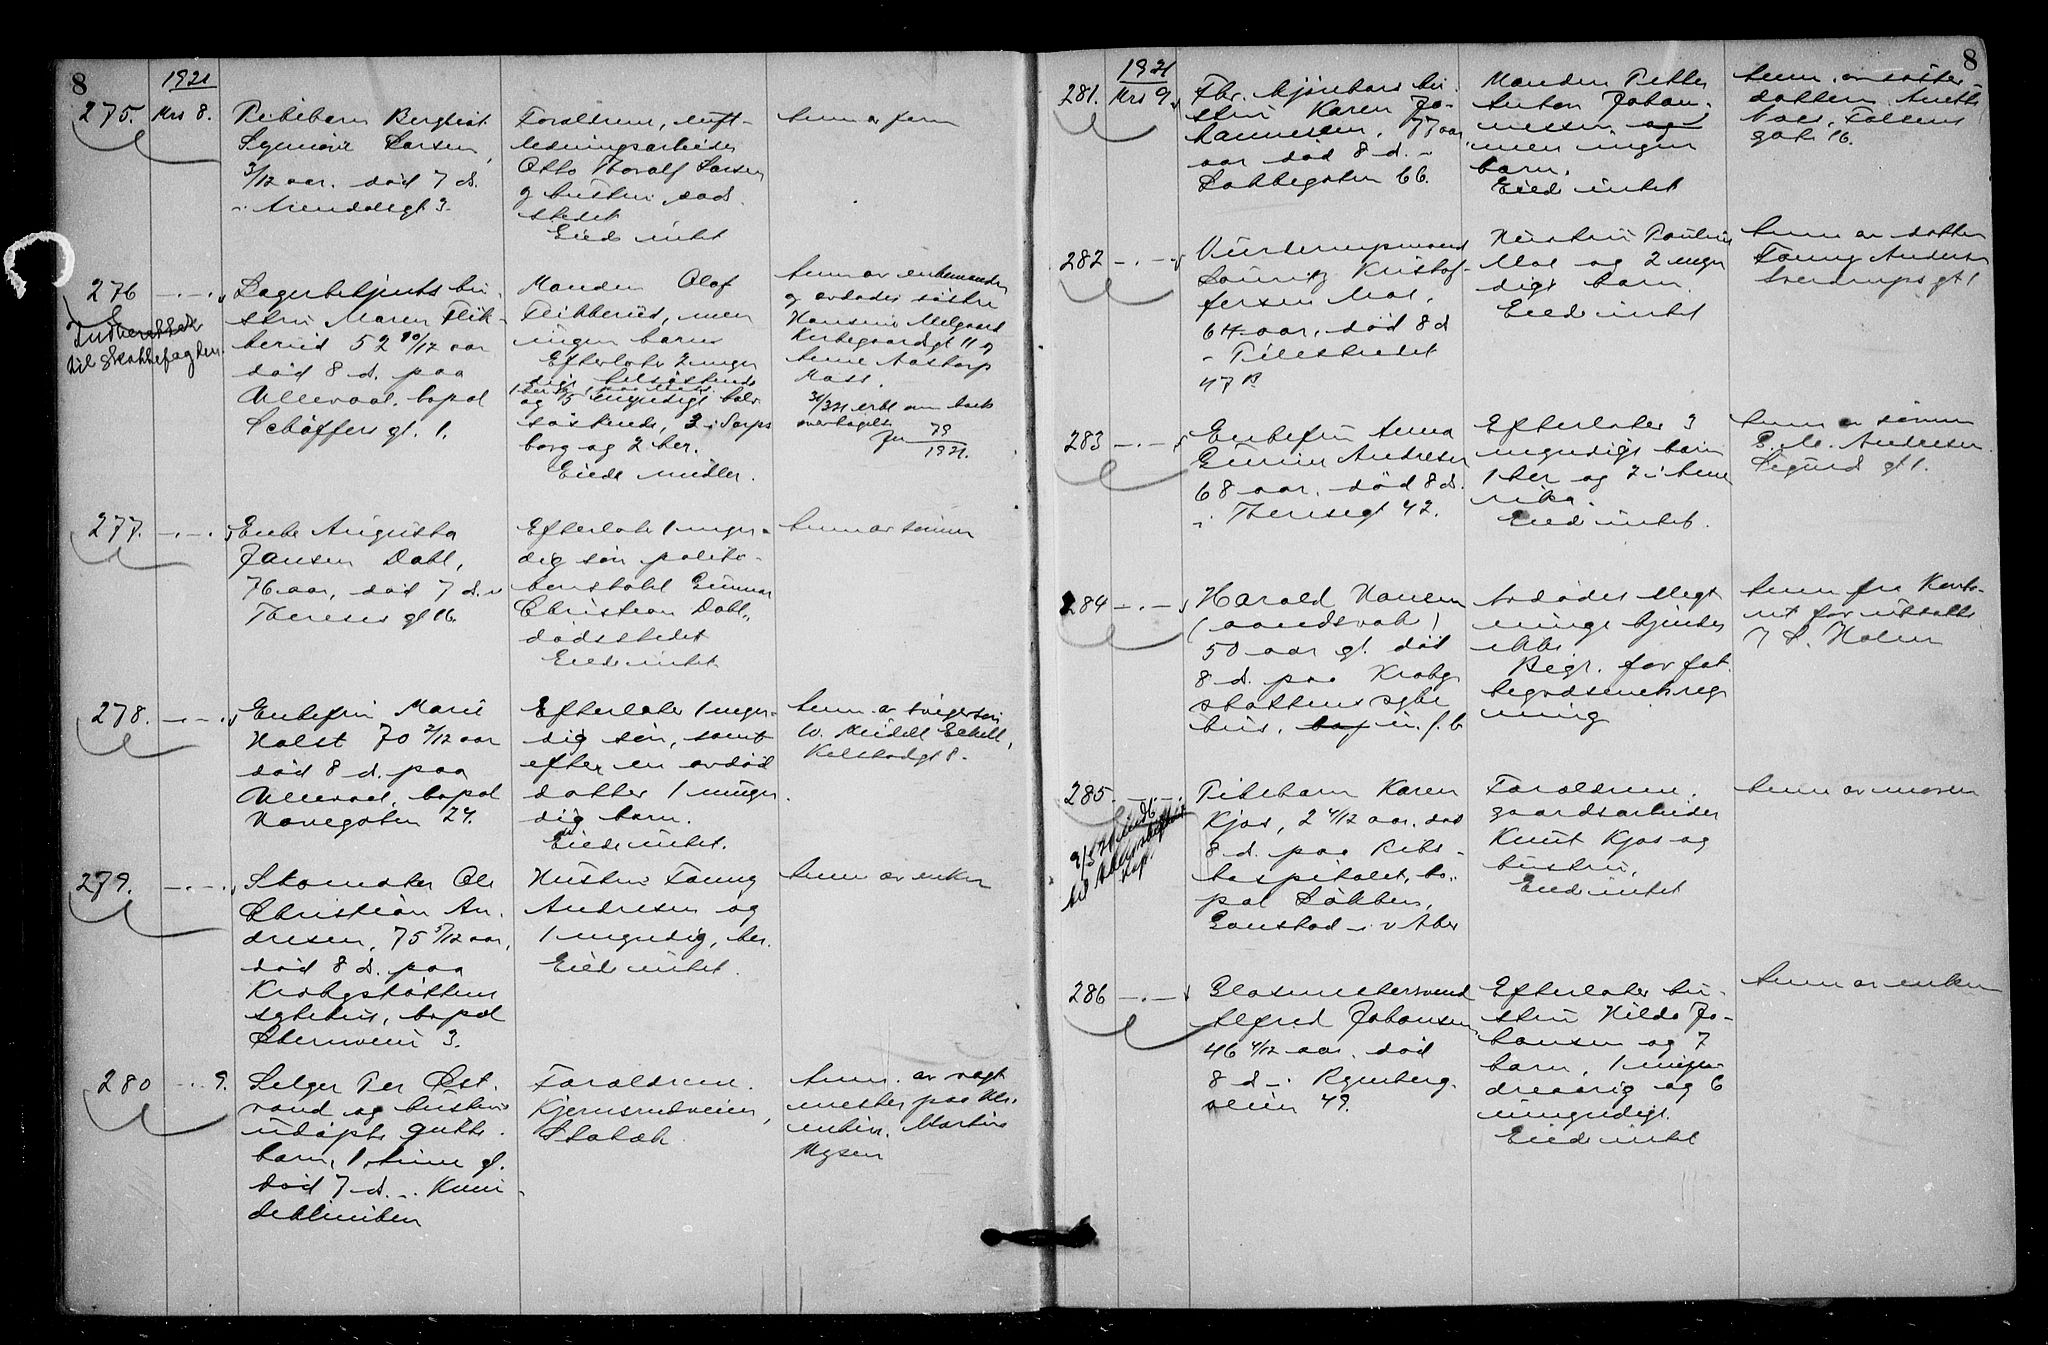 8
1921
275. Mrs 8.
Pikebarn Bergliot
Synnøve Larsen,
3/12 aar. død 7 d.
i Arendalsgt 3.
Forældrene, luft-
ledningsarbeider
Otto Thoralf Larsen
og hustru døds-
stedet
Eied intet
Anm av faren
276 -.-
til Skattefogden.
Lagerbetjents hu-
stru Maren Flik-
keriud 52 10/12 aar
død 8 d. paa
Ullevaal, bopæl
Schøffers gt. 1.
Manden Olaf
men
ingen barn
Efterlater 2 myn-
dige helsøskende
og myndigt halv
søskende, 2 i Sarps
borg og 2 her.
Eiede midler.
Anm av enkemanden
og avdødes søster
Hansine Melgaard
Kirkegaardsgt 11 og
Anne Aastorp
Moss.
overtagelse
79
1921.
277. -.-
Enke Augusta
Jansen Dahl,
76 aar, død 7 d. i
Thereses gt 16.
Efterlater 1 myn-
dig søn politi-
konstabel Gunnar
Christian Dahl,
dødsstedet
Eied intet
Anm av sønnen
278. -.-
Enkefru Marie
Holst 70 2/12 aar
død 8 d. paa
Ullevaal, bopæl
Hovegaten 24.
Efterlater 1 myn-
dig søn, samt
efter en avdød
datter 1 myn-
dig barn.
Eied intet.
Anm av svigersøn
W. Meidell
279. -.-
Skomaker Ole
Christian An-
dresen, 75 5/12 aar,
død 8 d. paa
Krohgstøttens
sykehus, bopæl
Økernveien 3.
Hustru Fanny
Andresen og
1 myndig, her.
Eied intet.
Anm av enken
280 -.- 9.
Selger Per Øst-
rand og hustrus
udøpte gutte-
barn, 1 time gl.
død 7 d. i Kvin-
deklinikken
Forældrene.
Kjernsrudveien,
Stabæk.
Anm. av vagt
mester paa kli-
niken. Martin
Mysen
8
1921
281. Mrs 9.
hu-
stru Karen Jo-
hannessen, 77 aar
aar død 8 d. i
Lakkegaten 66.
Manden Petter
Anton Johan-
nessen og
men ingen
barn.
Eied intet
Anm. av søster-
datteren Anette
Næss, Tøiens
gate 16.
282 -.-
Lauritz Kristof-
fersen Moe,
64 aar, død 8 d
i Pilestredet
47 B
Hustru Pauline
Moe og 2 myn
dige barn.
Eied intet
Anm av datter
Fanny Andersen
Sverdrups gt 1
283 -.-
Enkefru Anna
Gunine Andresen
68 aar, død 8 d.
i Theresegt 42.
Efterlater 3
myndige barn
1 her og 2 i Ame
rika.
Eied intet.
Anm av sønnen
P. M. Andresen
Sigurds gt 1.
284 -.-
Harald Hansen
(aandssvak)
50 aar gl. død
8 d. paa Krohg
støttens syke
hus.
Avdødes slegt
ninge kjendes
ikke
Begr. for fat
tigvæsenets reg
ning
Anm fra Konto-
ret for utsatte
v S. Holm
285. -.-
Pikebarn Karen
Kjos, 2 4/12 aar, død
8 d. paa Riks-
hospitalet, bo-
pæl Løkken,
Gaustad i v Aker
Forældrene,
gaardsarbeider
Knut Kjos og
hustru.
Eied intet
Anm av moren
286 -.-
Glasmestersvend
Alfred Johansen
46 4/12 aar, død
8 d i Rynberg-
veien 49.
Efterlater hu-
stru Hilda Jo-
hansen og 7
barn, 1 minde-
reaarig og 6
umyndige.
Eied intet
Anm av enken